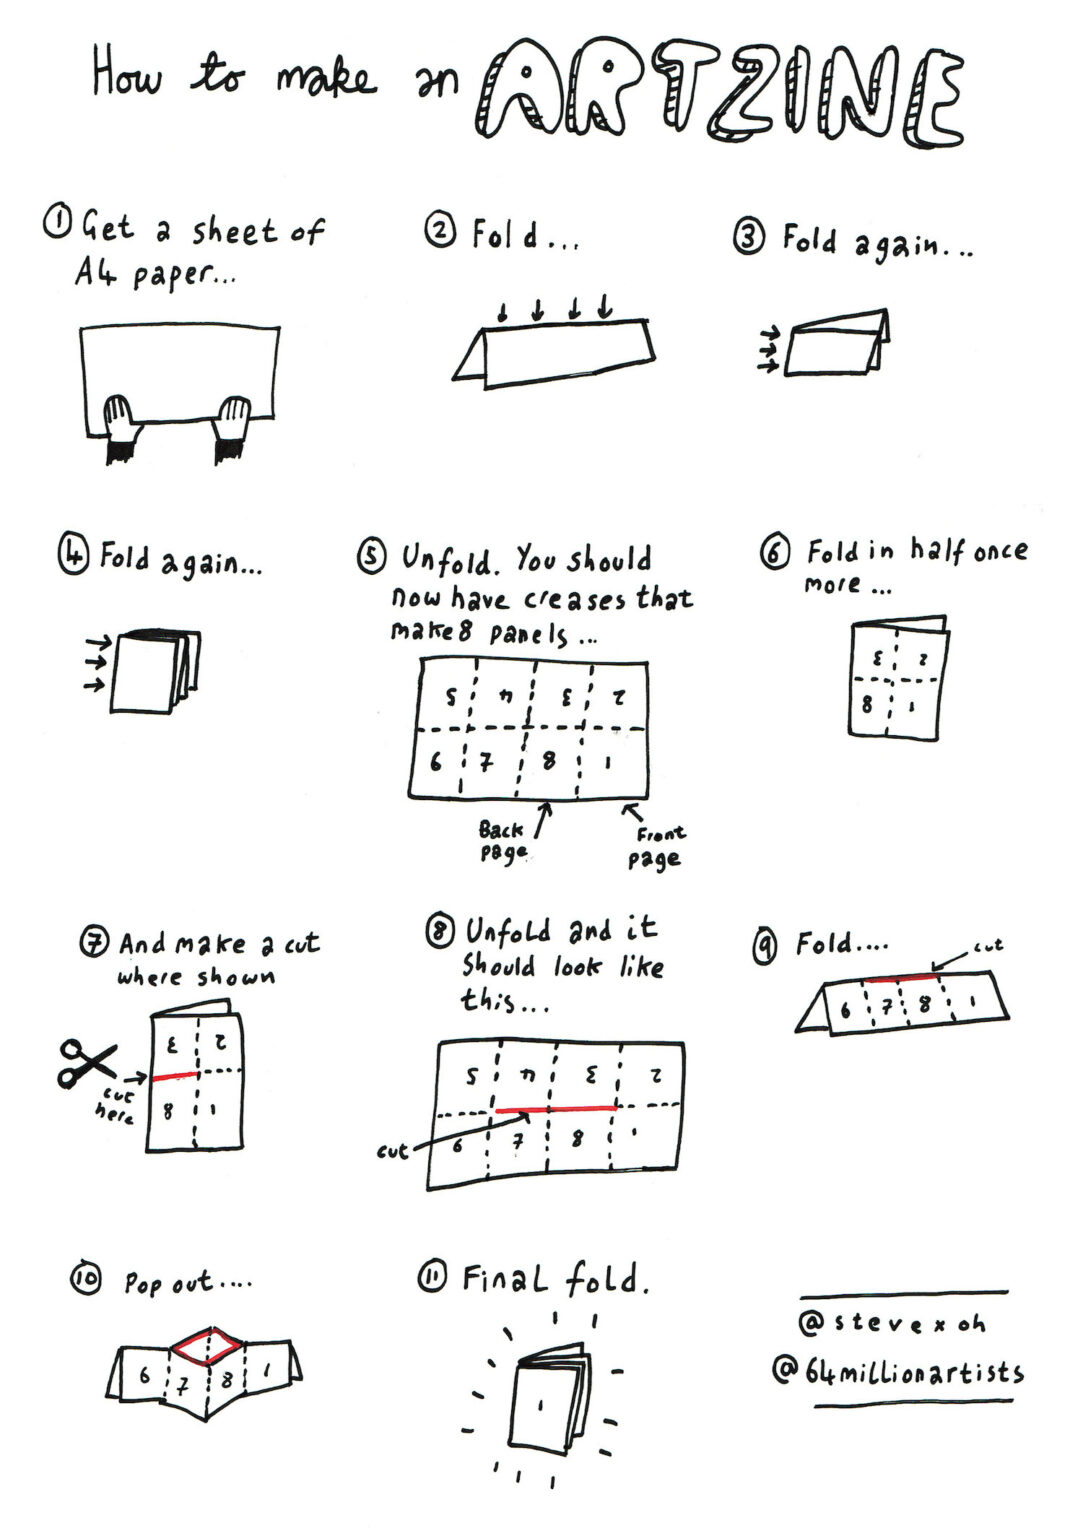 How to make an ARTZINE
① Get a sheet of
A4 paper...
② Fold...
③ Fold again...
④ Fold again...
⑤ Unfold. You should
now have creases that
make 8 panels...
5 4 3 2
6 7 8 1
Back
page
Front
page
⑥ Fold in half once
more...
3 2
8 1
⑦ And make a cut
where shown
3 2
cut
here
8 1
⑧ Unfold and it
should look like
this...
5 4 3 2
6 7 8 1
cut
⑨ Fold....
cut
6 7 8 1
⑩ Pop out....
6 7 8 1
⑪ Final fold.
1
@stevexoh
@64millionartists